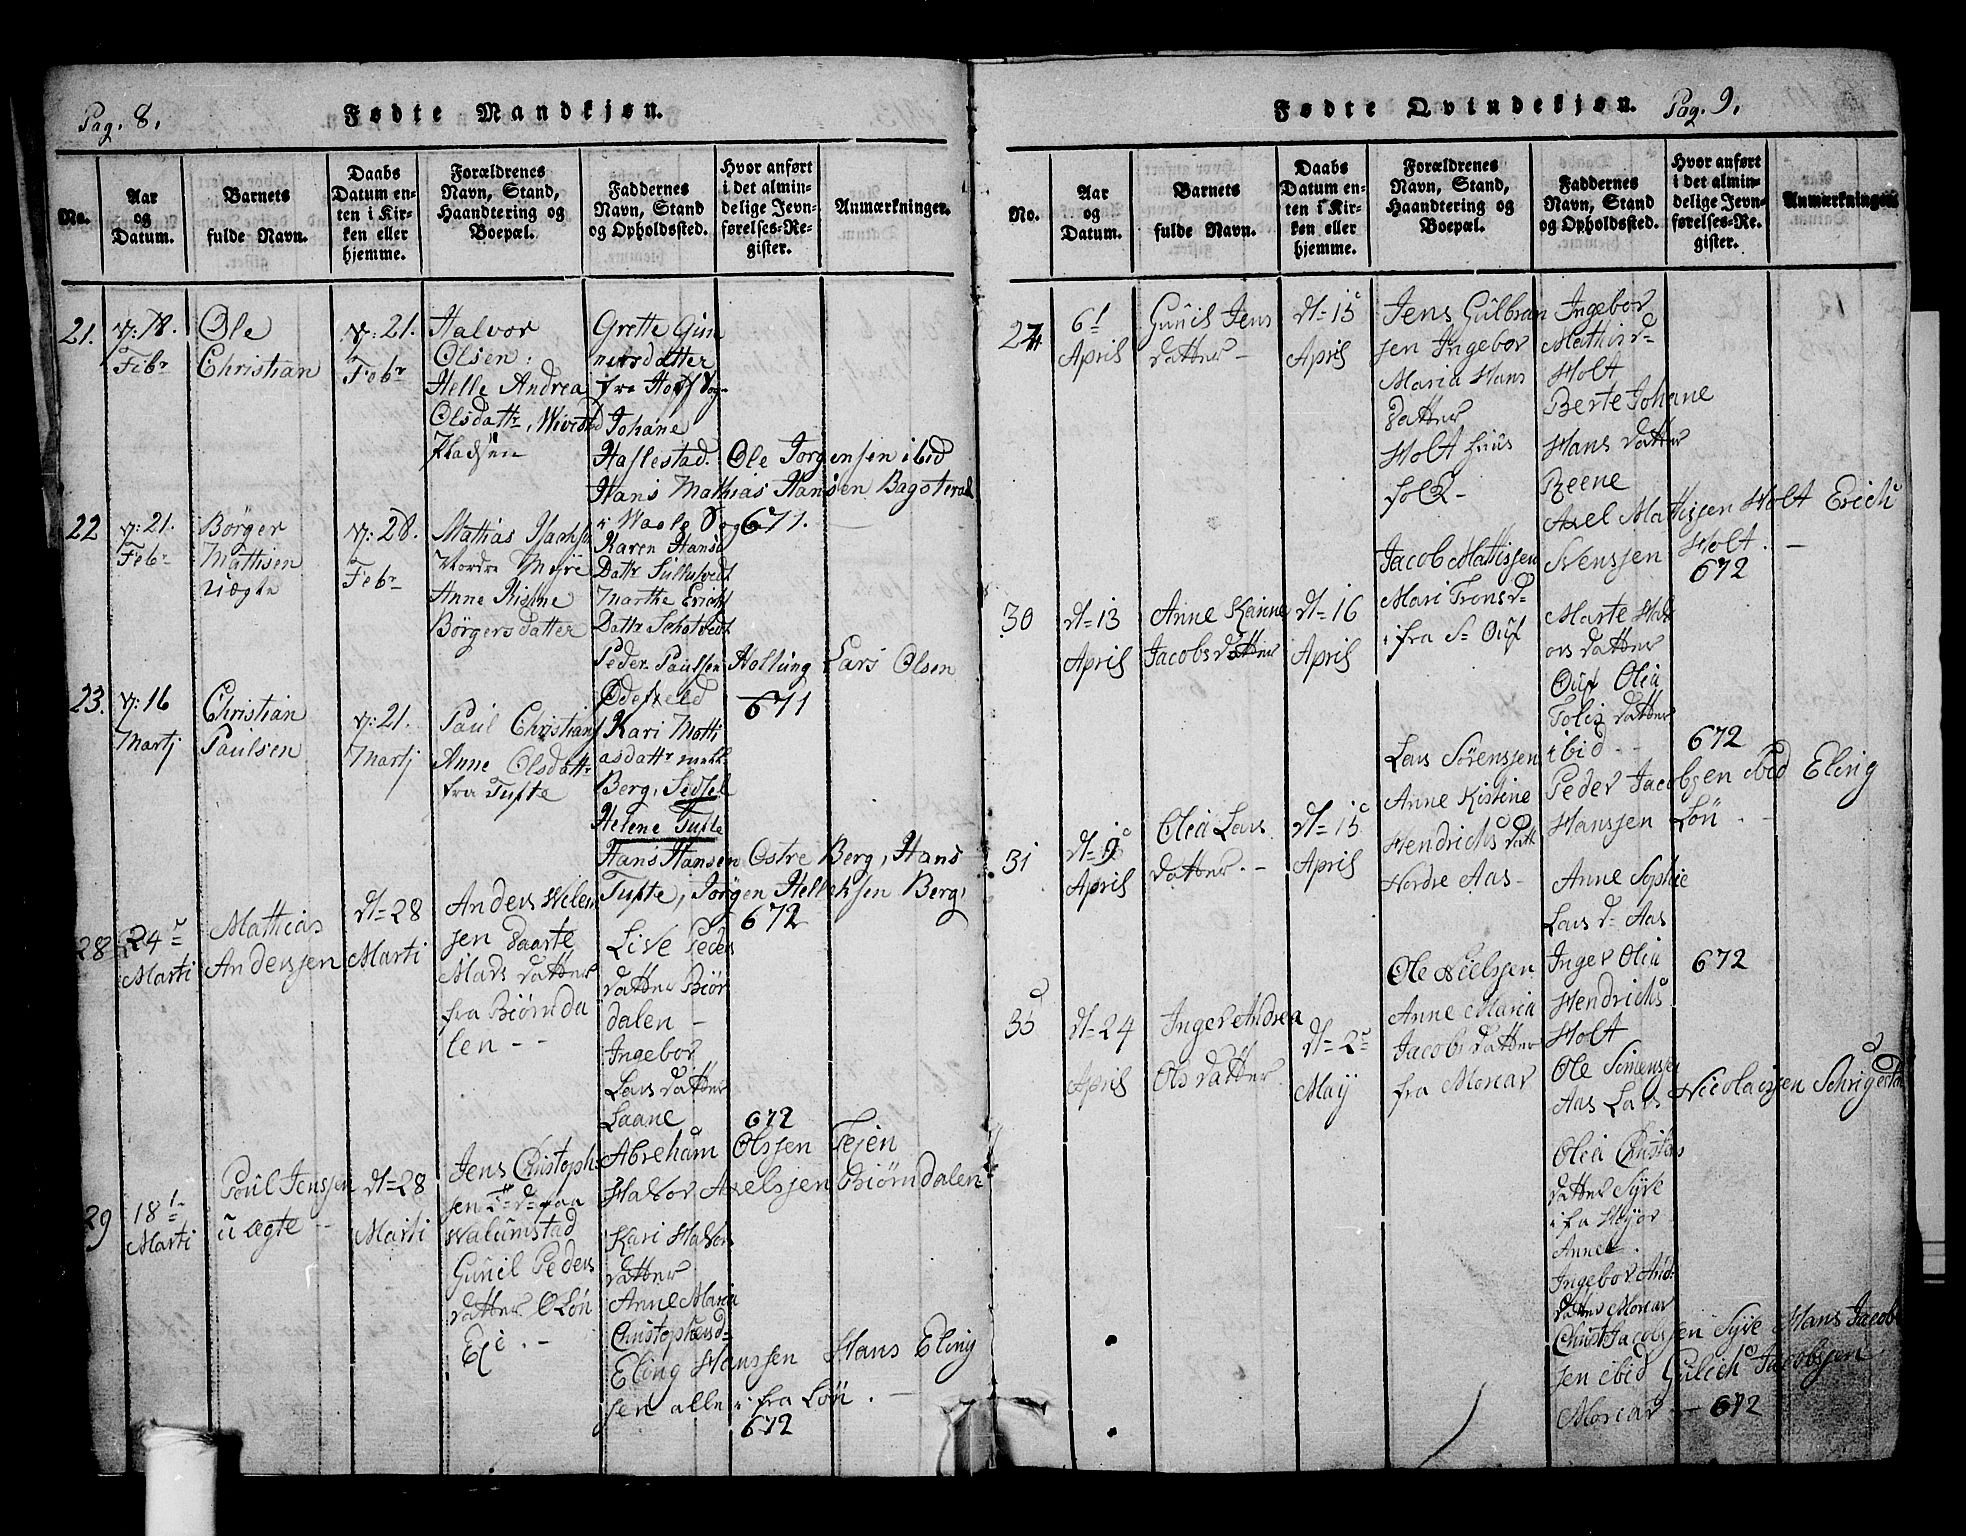 Pag. 8.
Fødte Mandkjøn.
No.
Aar
og
Datum.
Barnets
fulde Navn.
Daabs
Datum en-
ten i Kir-
ken eller
hjemme.
Forældrenes
Navn, Stand,
Haandtering og
Boepæl.
Faddernes
Navn, Stand
og Opholdssted.
Hvor anført
i det almin-
delige Jevn-
førelses-Re-
gister.
Anmærkninger.
21.
18.
Febr
Ole
Christian
21.
Febr
Halvor
Olsen.
Helle Andrea
Olsdattr,
Pladsen
Grette Gun
nersdatter
fra Hoff Sog-
Johane
Haslestad. Ole Jorgensen ibid
Hans Mathias Hansen
i Waale Sogn
671.
22
21.
Febr
Börger
Mathisen
uægte
28.
Febr
Mathias
Nordre
Anne
Börgersdatter
Karen Hansd
Datr
Marthe Erichs
Datr
Peder Paulsen Hollung Lars Olsen
671
23.
16
Martj
Christian
Paulsen
21.
Martj
Paul Christians
Anne Olsdattr
fra Tufte
Kari Motti
asdattr
Berg, Sedsel
Helene Tufte
Hans Hansen Ostre Berg, Hans
Tufte, Jörgen Berg,
672
28
24
Marti
Mattias
Anderssen
28
Marti
Anders
sen
Mads datter
fra Biörnda
len - -
Live Peders
datter Biör
dalen -
Ingebor
Lars datter
Laane
Abreham Olssen
Halvor Axelssen Biörndalen
672
29
18
Marti
Poul Jenssen
u ægte -
28
Marti
Jens Christoph
sen
Walumstad
Gunil Peders
datter
Eje. -
Kari Halvors
datter
Anne Maria
Christophersd
Eling Hanssen Hans Eling
sen alle i fra Løn. -
672
Fødte Qvindekjøn. Pag. 9.
No.
Aar
og
Datum.
Barnets
fulde Navn.
Daabs
Datum en-
ten i Kir-
ken eller
hjemme.
Forældrenes
Navn, Stand,
Haandtering og
Boepæl.
Faddernes
Navn, Stand
og Opholdssted.
Hvor anført
i det almin-
delige Jevn-
førelses-Re-
gister.
Anmærkninger
24
6
April
Gunil Jens
datter -
15
April
Jens Gulbran
sen Ingebor
Maria Hans
datter
Holt Huus
folk -
Ingebor
Mathisd
Holt
Berte Johane
Hans datter
Reene
Axel Mathissen Holt Erich
Svenssen Holt. -
672
30
13
April
Anne
Jacobs datter
16
April
Jacob Mathissen
Mari
i fra
Marte
ors datter
Olia
datter
ibid. -
Peder Jacobsen ibid Eling
Hanssen Løn. -
672
31
9
April
Olea Lars
datter. -
15
April
Lars Sörenssen
Anne Kistine
Hendrichs datt
Nordre Aas -
Anne Sophie
Lars d Aas
Inger Olia
Hendrichs
Holt
Ole Simenssen
Aas Lars Nicolaissen
672
35
24
April
Inger Andrea
Ols datter.
2
Maÿ
Ole Nielssen
Anne Maria
Jacobs datter
fra Morcar
Olea Christens
datter
i fra
Anne
Ingebor And
datter Morcar
Jacobssen Hans Jacob
sen ibid Jacobssen
Morcar - 672